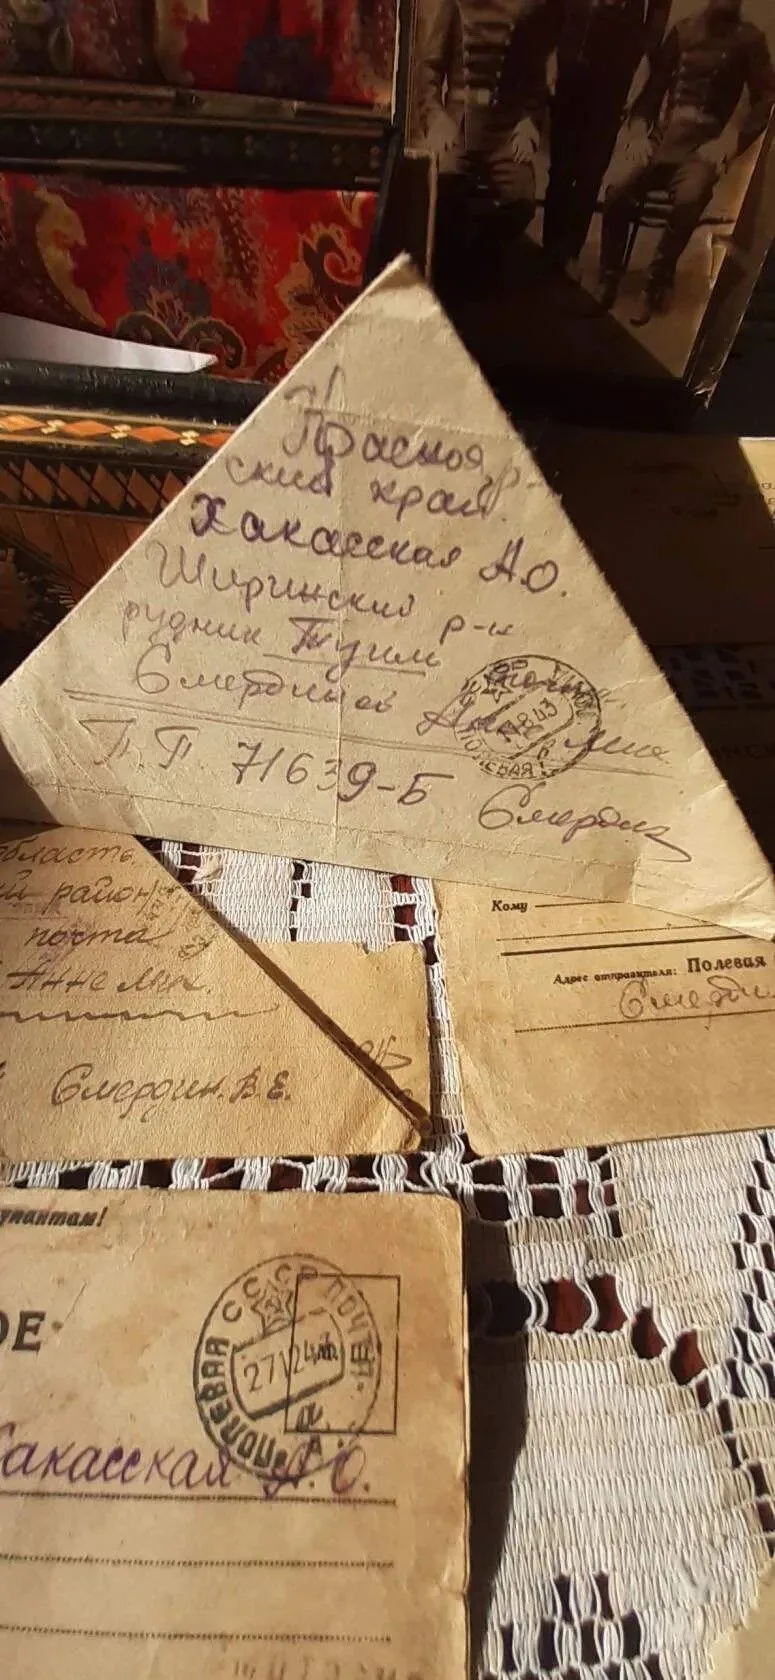 Краснояр-
ский край
Хакасская А.О.
Ширинский р-н
рудник Туим
Смердиной
П.П. 71639-Б Смердин
СССР
ПОЛЕВАЯ
43
область
район
почта
Анне Мих.
Смердин. В. Е.
Кому
Адрес отправителя: Полевая
Смерди
купантам!
ОЕ
СССР ПОЧТА
ПОЛЕВАЯ
Хакасская А. О.